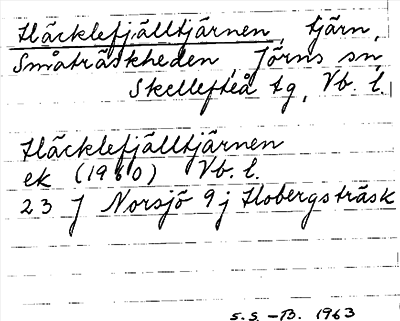 Häcklefjälltjärnen, tjärn,
Småträskheden, Jörns sn,
Skellefteå tg, Vb. l.
Häcklefjälltjärnen
ek (1960) Vb. l.
23 J Norsjö 9j Hobergsträsk
S.S. -B. 1963